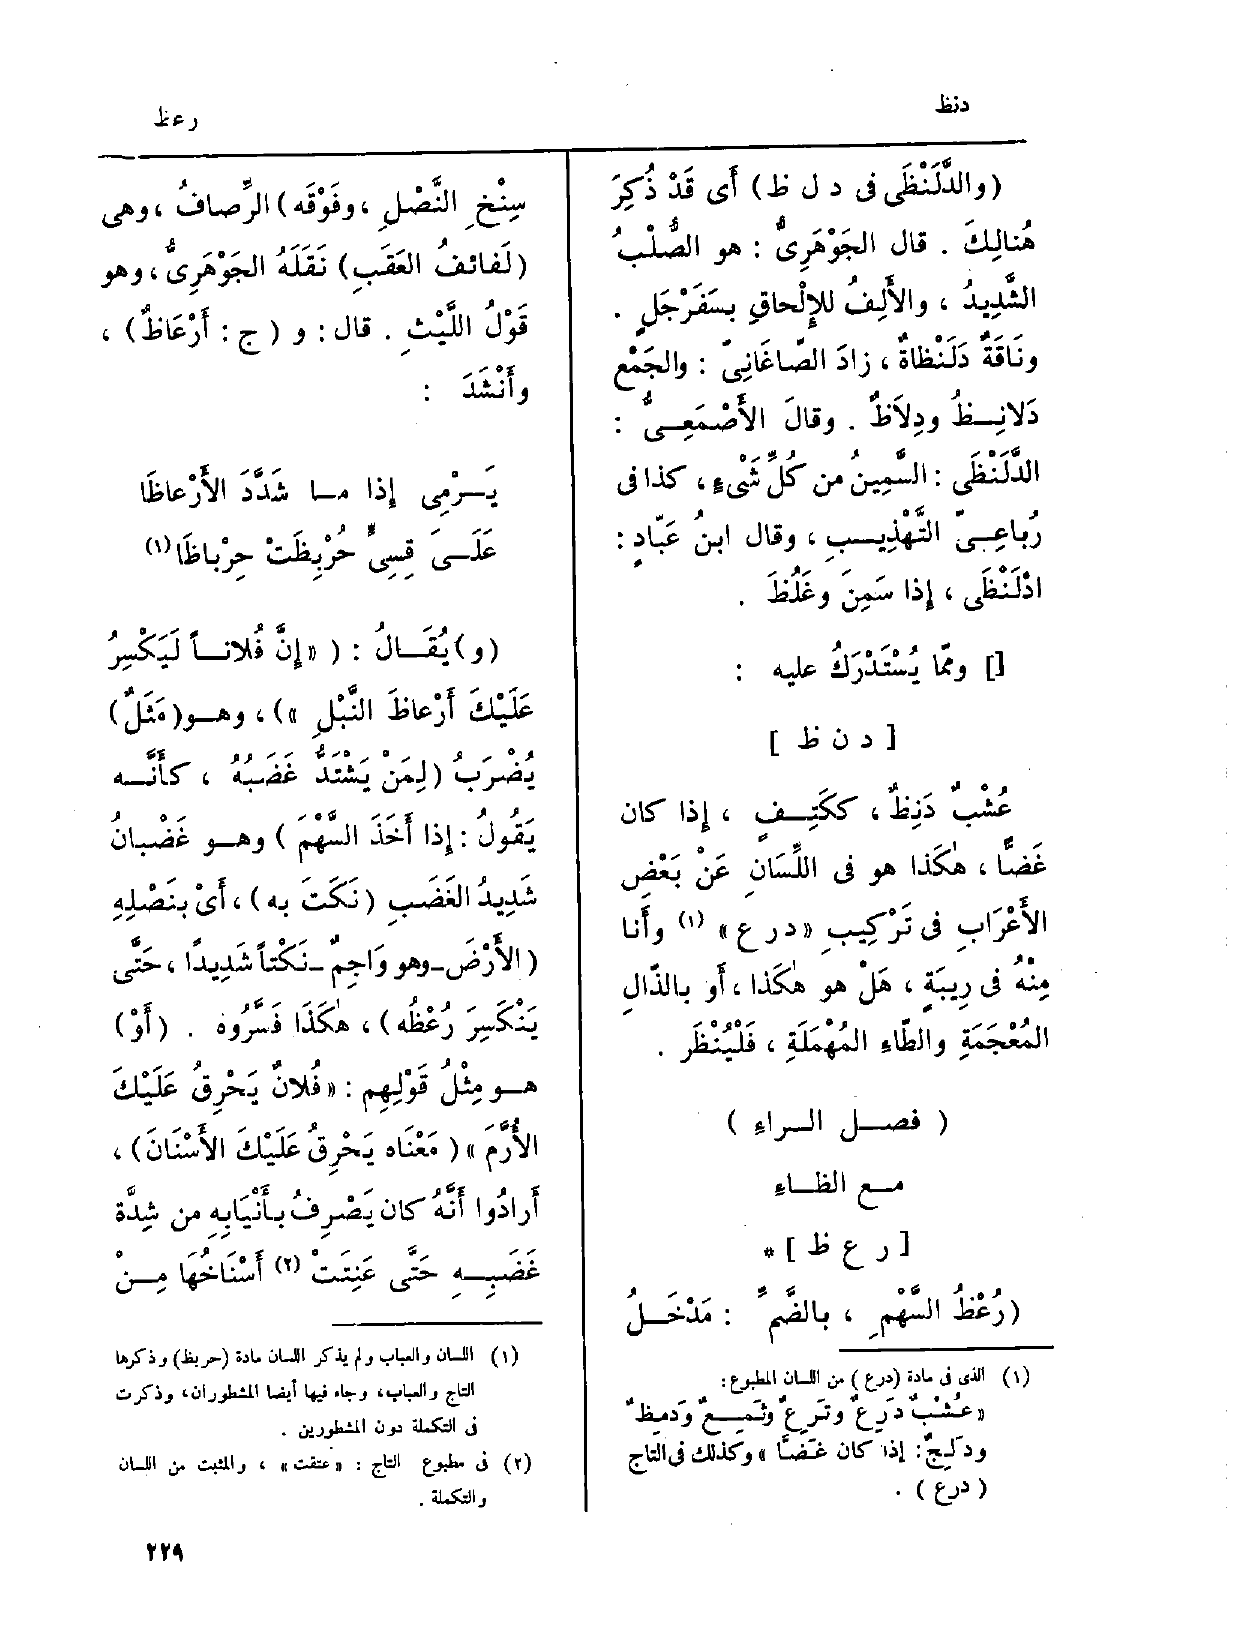 دنظ
رعظ
(والدَّلَنْظَى فى د ل ظ) أَى قَدْ ذُكِرَ
هُنالِكَ . قال الجَوْهَرِىُّ : هو الصُّلْبُ
الشَّدِيدُ ، والأَلِفُ للإِلْحاقِ بسَفَرْجَلٍ .
ونَاقَةٌ دَلَنْظاةٌ ، زادَ الصّاغَانِىّ : والجَمْع
دَلانِـظُ ودِلاَظٌ . وقالَ الأَصْمَعِـىُّ :
الدَّلَنْظَى : السَّمِينُ من كُلِّ شَىْءٍ ، كذا فى
رُباعِـىّ التَّهْذِيـبِ ، وقال ابنُ عَبّادٍ :
ادْلَنْظَى ، إذا سَمِنَ وغَلُظَ .
[] وممّا يُسْتَدْرَكُ عليه :
[ د ن ظ ]
عُشْبٌ دَنِظٌ ، ككَتِـفٍ ، إذا كان
غَضًّا ، هٰكَذا هو فى اللِّسَانِ عَنْ بَعْضِ
الأَعْرَابِ فى تَرْكِيبِ «درع» (١) وأَنا
مِنْهُ فى رِيبَةٍ ، هَلْ هو هٰكَذا ، أو بالذّالِ
المُعْجَمَةِ والطّاءِ المُهْمَلَةِ ، فَلْيُنْظَر .
( فصـل الـراء )
مـع الظـاء
[ ر ع ظ ] *
(رُعْظُ السَّهْمِ ، بالضَّمِّ : مَدْخَـلُ
(١) الذى فى مادة (درع) من اللسان المطبوع :
«عُشْبٌ دَرِعٌ وتَرِعٌ وثَمِـعٌ ودَمِظٌ
ودَلِجٌ : إذا كان غَضًّا » وكذلك فى التاج
( درع ) .
سِنْخِ النَّصْلِ ، وفَوْقَه) الرِّصافُ ، وهى
(لَفائفُ العَقَبِ) نَقَلَهُ الجَوْهَرِىُّ ، وهو
قَوْلُ اللَّيْثِ . قال : و ( ج : أَرْعَاظٌ) ،
وأَنْشَدَ :
يَـرْمِى إِذا مـا شَدَّدَ الأَرْعاظَا
عَلَـى قِسِىٍّ حُرْبِظَتْ حِرْباظَا (١)
(و) يُقَـالُ : ( «إِنَّ فُلانـاً لَيَكْسِرُ
عَلَيْكَ أَرْعاظَ النَّبْلِ » ) ، وهـو (مَثَلٌ)
يُضْرَبُ (لِمَنْ يَشْتَدُّ غَضَبُهُ ، كأَنَّـه
يَقولُ : إذا أَخَذَ السَّهْمَ ) وهـو غَضْبانُ
شَدِيدُ الغَضَبِ (نَكَتَ به) ، أَىْ بنَصْلِهِ
(الأَرْضَ ـ وهو وَاجِمٌ ـ نَكْتاً شَدِيدًا ، حَتَّى
يَنْكَسِرَ رُعْظُه) ، هٰكَذَا فَسَّرُوه . (أَوْ)
هـو مِثْلُ قَوْلِهِم : «فُلانٌ يَحْرِقُ عَلَيْكَ
الأُرَّمَ » ( مَعْنَاه يَحْرِقُ عَلَيْكَ الأَسْنَانَ) ،
أَرادُوا أَنَّهُ كان يَصْرِفُ بأَنْيَابِهِ من شِدَّة
غَضَبِـهِ حَتَّى عَنِتَت (٢) أَسْنَاخُهَا مِـنْ
(١) اللسان والعباب ولم يذكر اللسان مادة (حربظ) وذكرها
التاج والعباب ، وجاء فيها أيضا المشطوران ، وذكرت
فى التكملة دون المشطورين .
(٢) فى مطبوع التاج : «عتقت » ، والمثبت من اللسان
والتكملة .
٢٢٩